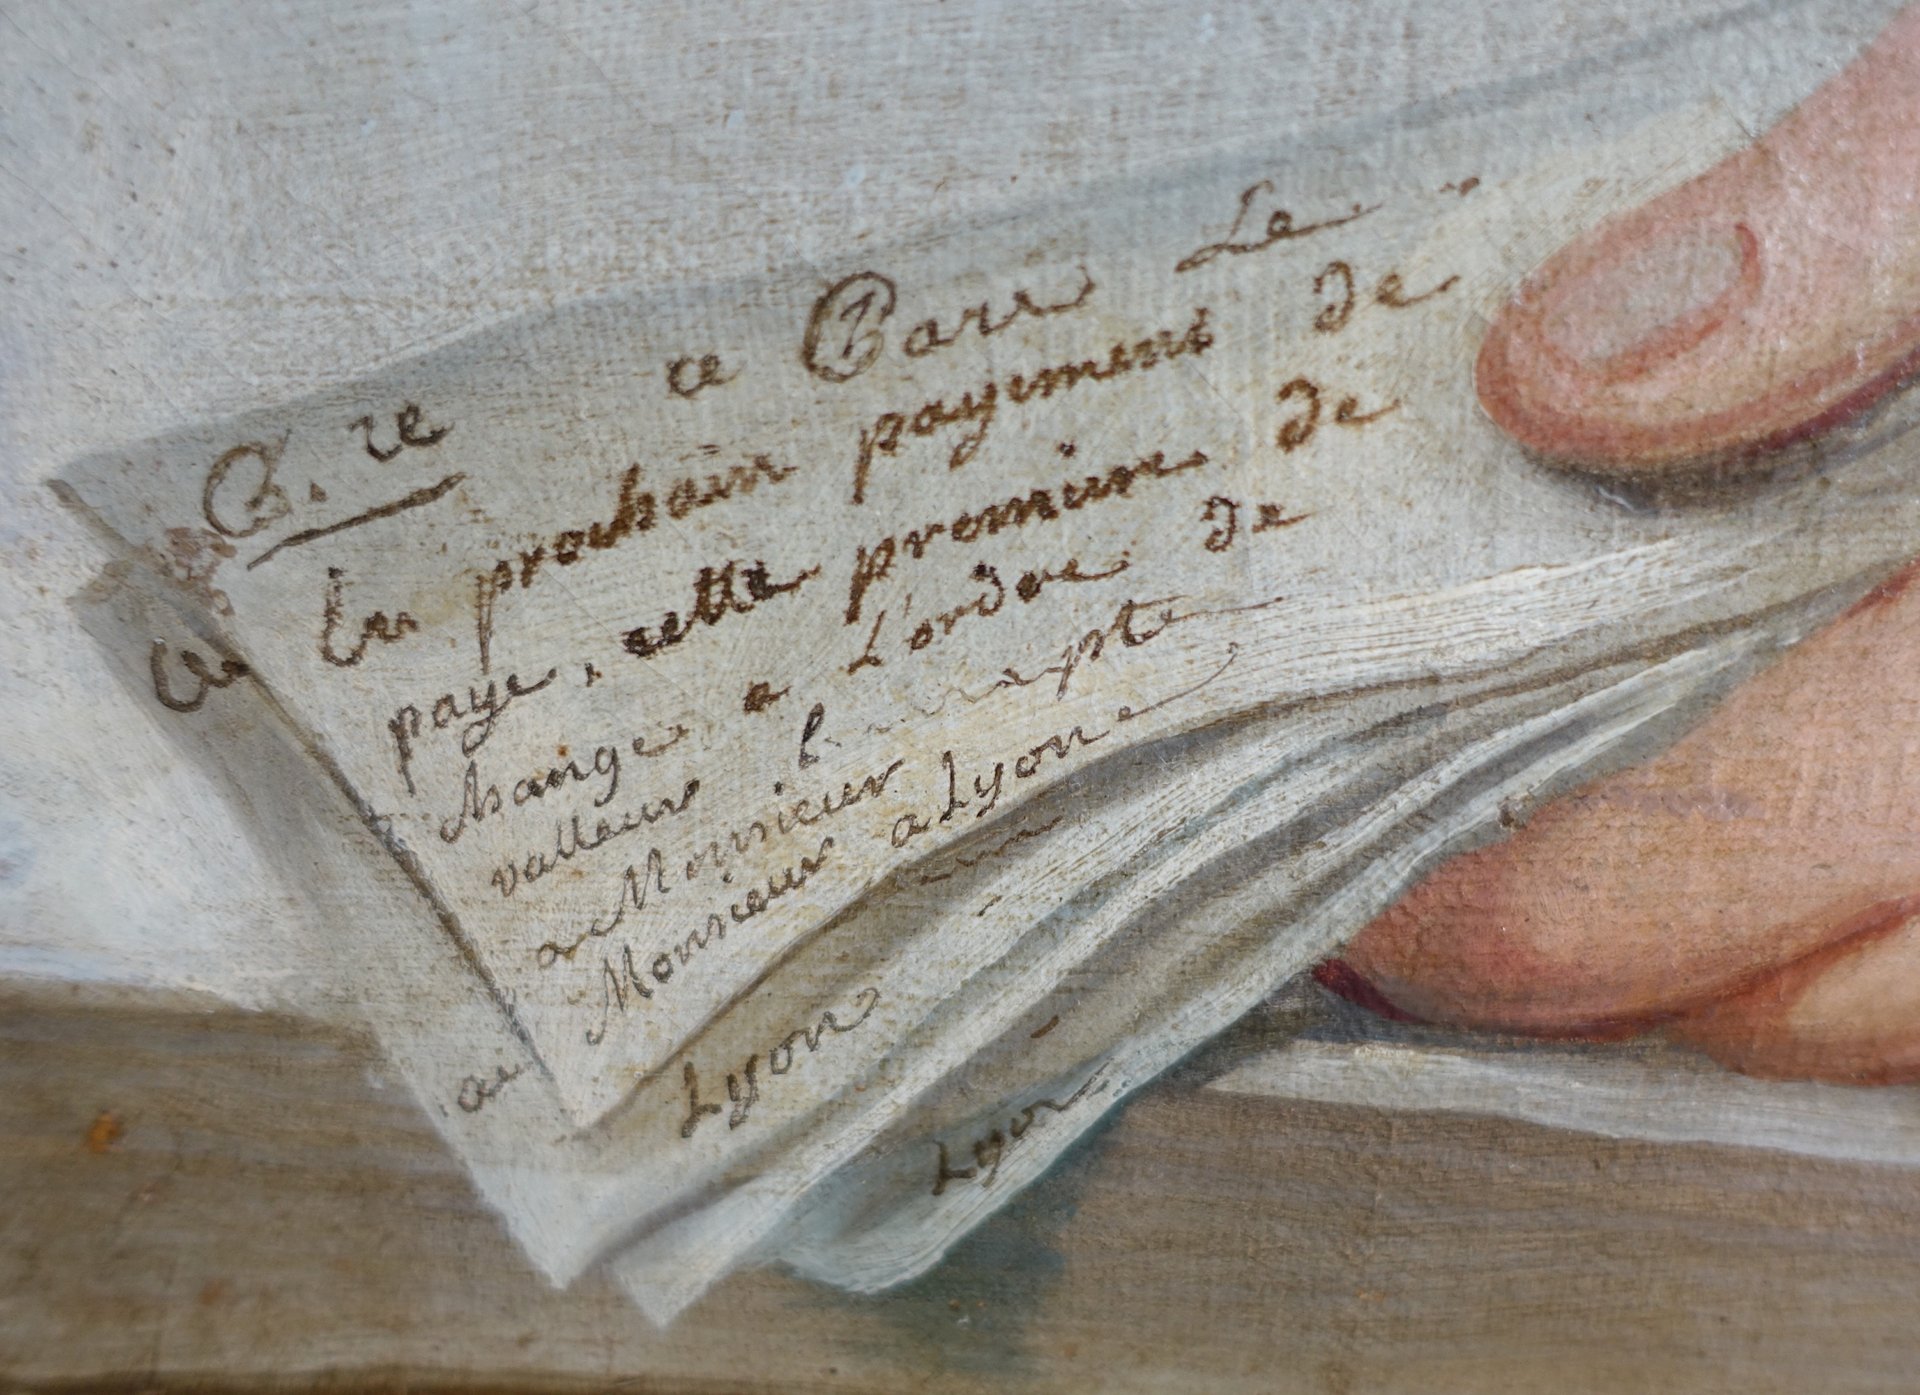 B. re a Paris Le
En prochain payement de
payé, cette premiere de
change a L'ordre de
valleur compte
a Monsieur
Monsieur a Lyon
Lyon
a
Lyon